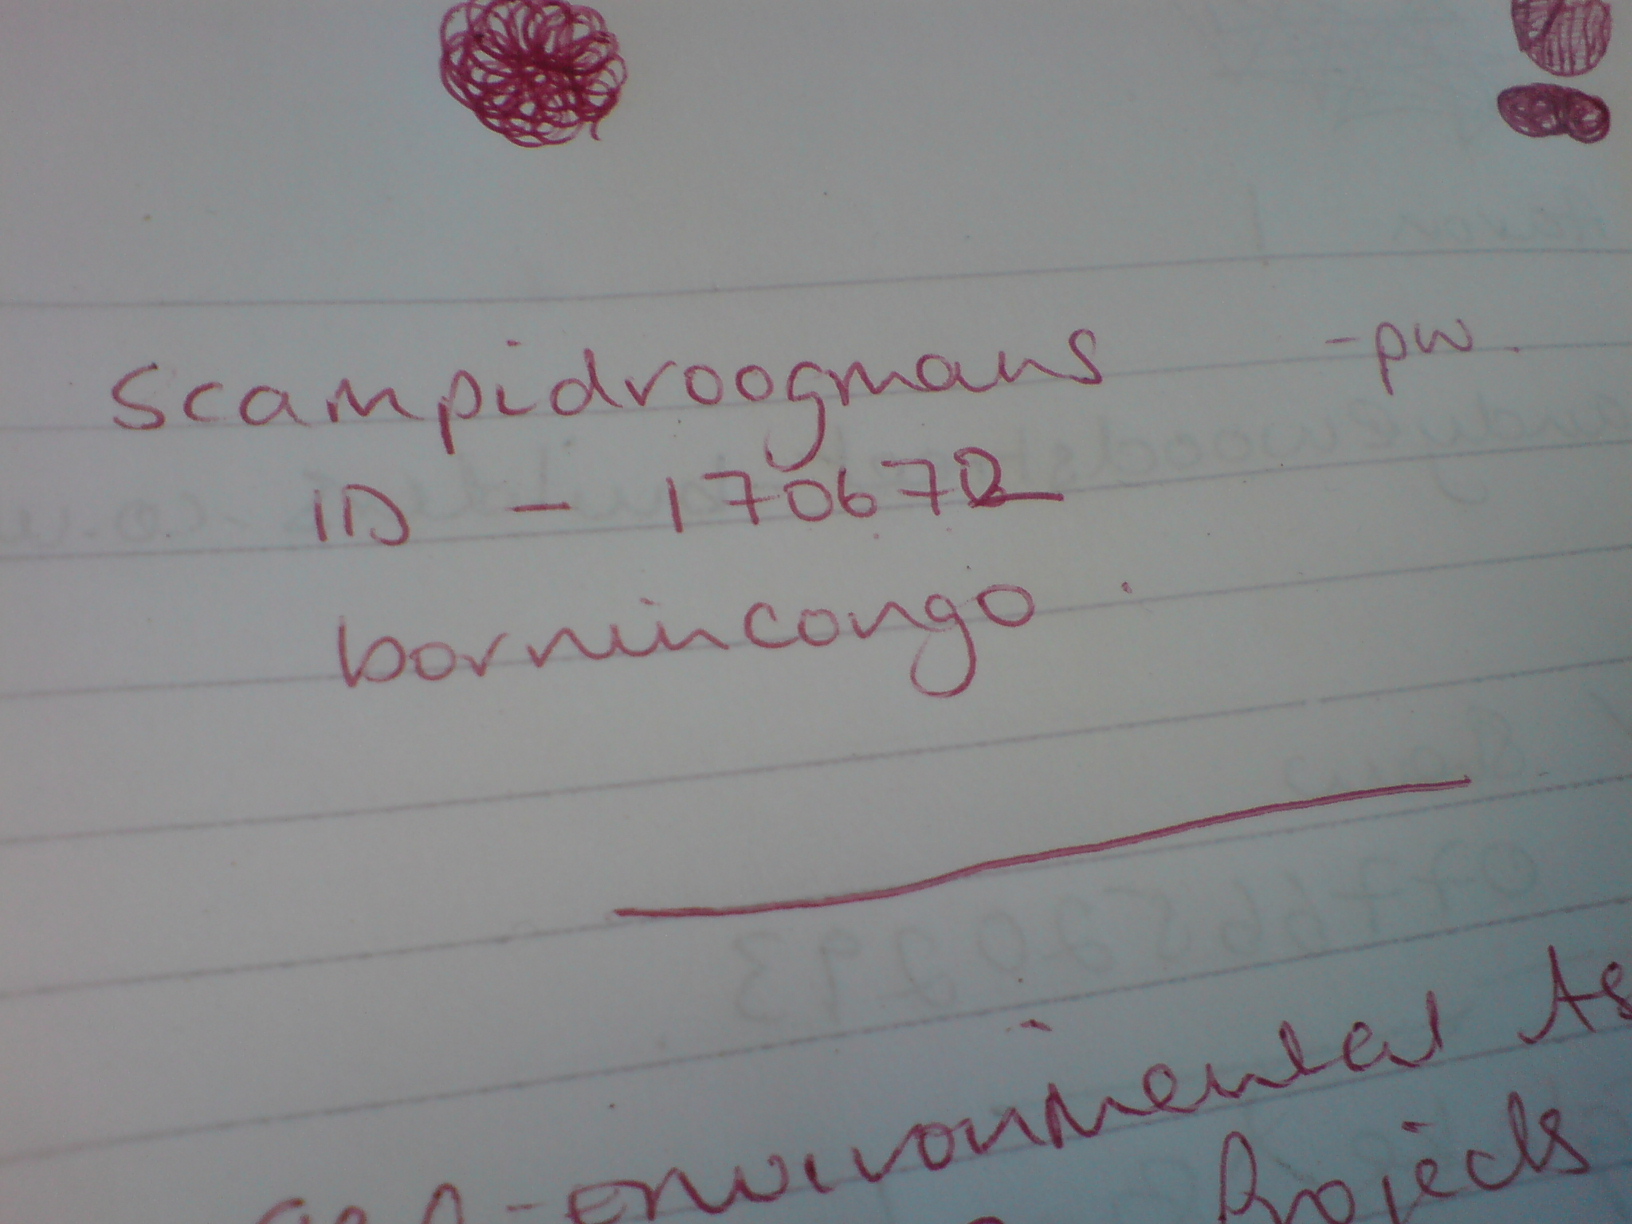 scampidroogmans -pw.
ID - 170672
bornincongo.
Geo-Environmental As
Projects